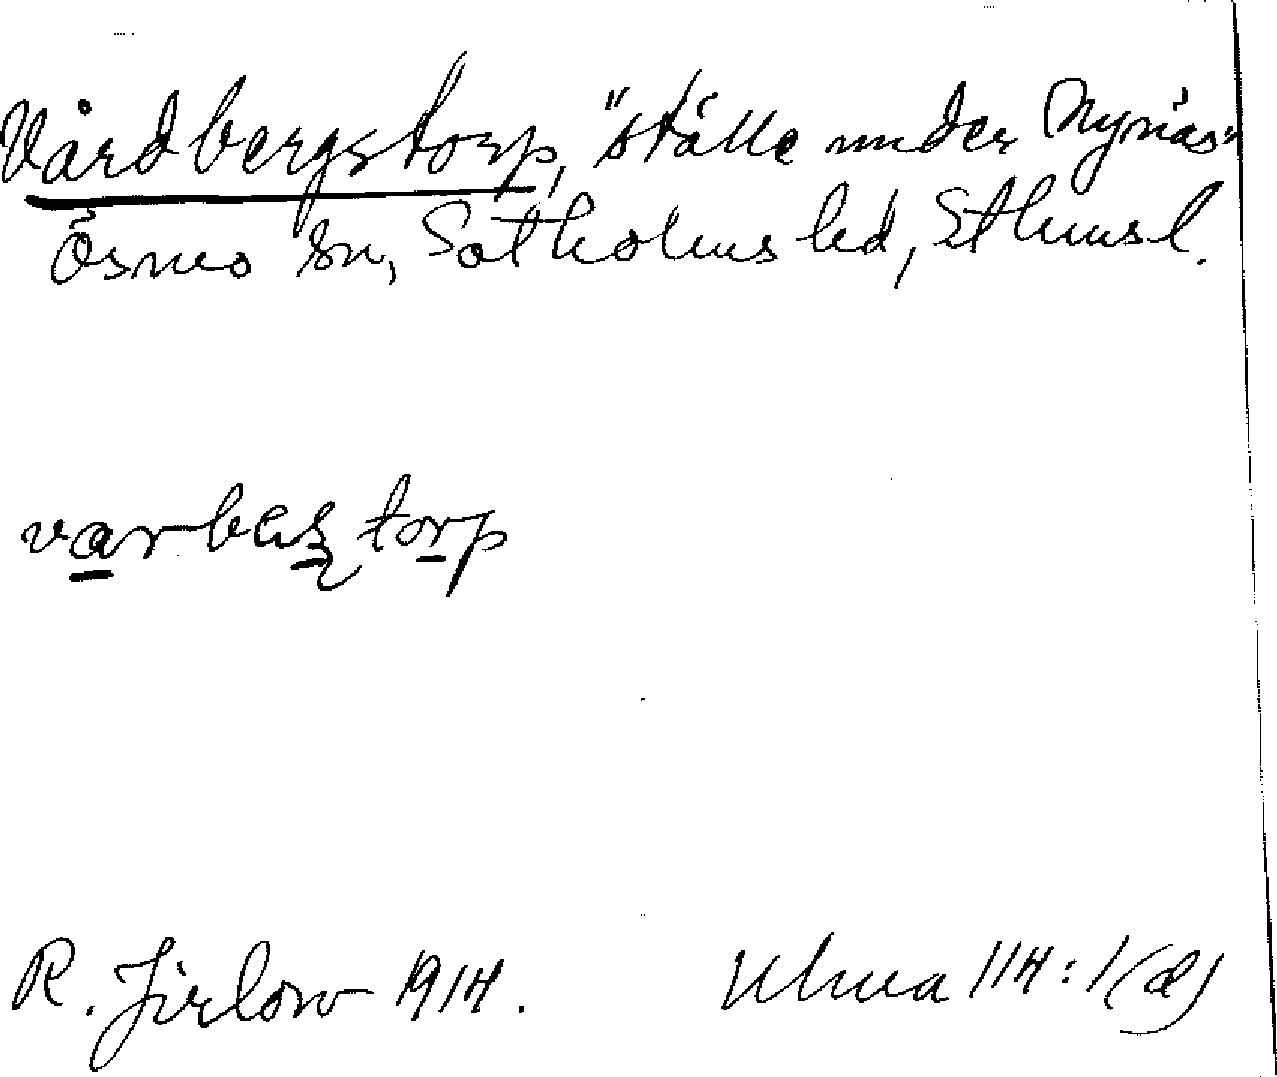 Vårdbergstorp, "ställe under Nynäs"
Ösmo sn, Sotholms hd, Sthmsl.
varbes torp
R. Jirlow 1914.
Ulma 114:1(a)